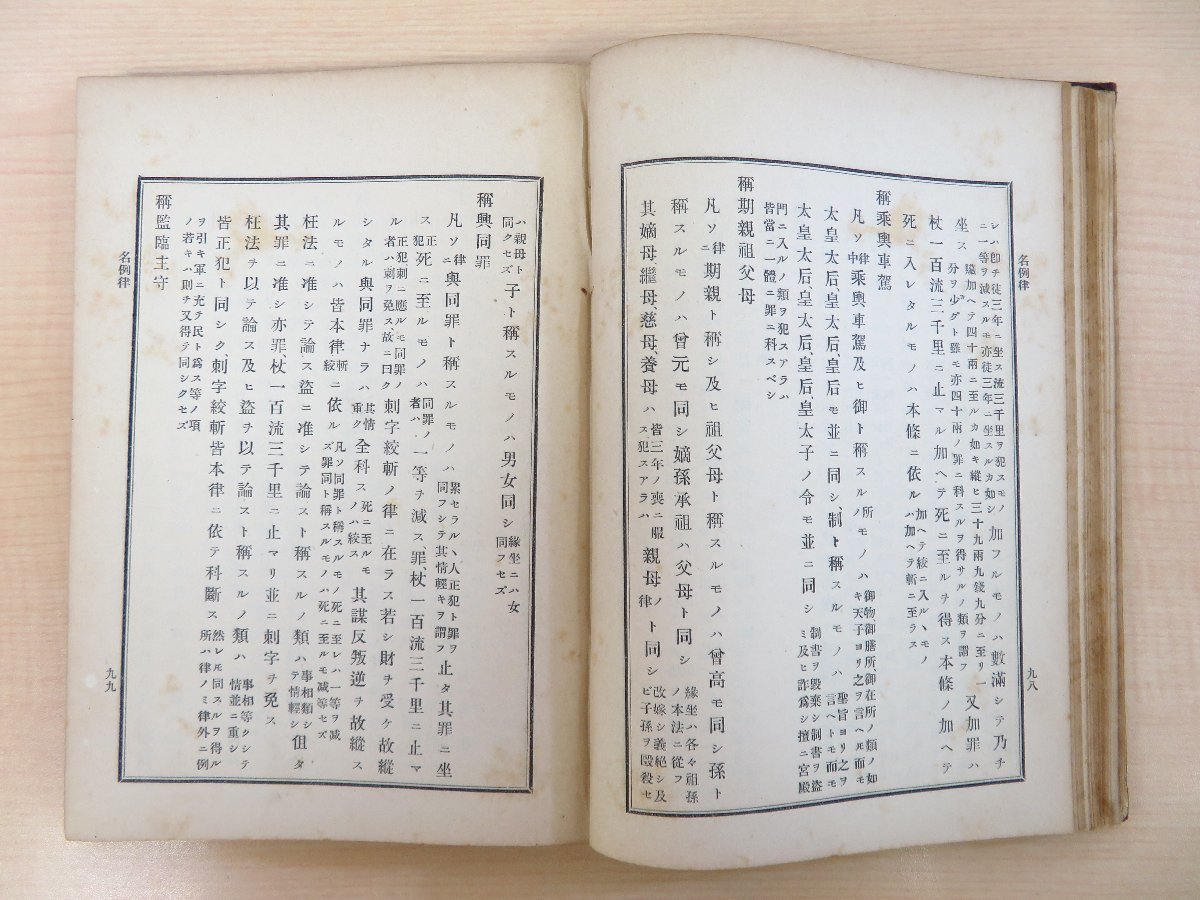 名例律
九八
シハ卽チ徒三年ニ坐ス流三千里ヲ犯スモノ
ニ一等ヲ減スルモ亦徒三年ニ坐スルカ如シ
加フルモノハ數滿シテ乃チ
坐ス
還加ヘテ四十兩ニ至ルカ如キ縱ヒ三十九兩九錢九分ニ至リ一
分ヲ少グト雖モ亦四十兩ノ罪ニ科スルヲ得サルノ類ヲ謂フ
又加罪ハ
杖一百流三千里ニ止マル加ヘテ死ニ至ルヲ得ス本條ノ加ヘテ
死ニ入レタルモノハ本條ニ依ル
加ヘテ絞ニ入ルヽモノ
ハ加ヘテ斬ニ至ラス
稱乘輿車駕
凡ソ律中乘輿車駕及ヒ御ト稱スル所ノモノハ
御物、御膳所、御在所ノ類ノ如
キ天子ヨリ之ヲ言ヘルモ而モ
太皇太后、皇太后、皇后モ並ニ同シ、制ト稱スルモノハ
聖旨ヨリ之ヲ
言ヘトモ而モ
太皇太后、皇太后、皇后、皇太子ノ令モ並ニ同シ
制書ヲ毀棄シ制書ヲ盜
ミ及ヒ詐爲シ擅ニ宮殿
門ニ入ルノ類ヲ犯スアラハ
皆當ニ一體ニ罪ニ科スベシ
稱期親祖父母
凡ソ律ニ期親ト稱シ及ヒ祖父母ト稱スルモノハ曾高モ同シ孫ト
稱スルモノハ曾元モ同シ嫡孫承祖ハ父母ト同シ
緣坐ハ各々祖孫
ノ本法ニ從フ
其嫡母繼母慈母、養母ハ
皆三年ノ喪ニ服
ス犯スアラハ
親母ノ律ト同シ
改嫁シ義絕シ及
ヒ子孫ヲ毆殺セ
ハ親母ト
同クセズ
子ト稱スルモノハ男女同シ
緣坐ニハ女
同フセズ
稱興同罪
凡ソ律ニ興同罪ト稱スルモノハ
累セラルヽ人正犯ト罪ヲ
同フシテ其情輕キヲ謂フ
止タ其罪ニ坐
ス
正犯
死ニ至ルモノハ
同罪ノ
者ハ
一等ヲ減ス、罪、杖一百流三千里ニ止マ
ル
正犯刺ニ應ルモ同罪ノ
者ハ刺ヲ免ス、故ニ曰ク
刺字絞斬ノ律ニ在ラス若シ財ヲ受ケ故縱
シタル興同罪ナラハ
其情
重ク
全科ス
死ニ至ルモ
ノハ絞ス
其謀反叛逆ヲ故縱ス
ルモノハ皆本律
斬
絞
ニ依ル
凡ソ同罪ト稱スルモノ死ニ至レハ一等ヲ減
ズ罪同ト稱スルモノハ死ニ至ルモ減等セズ
枉法ニ准シテ論ス盜ニ准シテ論スト稱スルノ類ハ
事相類シ
テ情輕シ
但タ
其罪ニ准シ亦罪、杖一百流三千里ニ止マリ並ニ刺字ヲ免ス
枉法ヲ以テ論ス及ヒ盜ヲ以テ論スト稱スルノ類ハ
事相等クシテ
情並ニ重シ
皆正犯ト同シク、刺字絞斬皆本律ニ依テ科斷ス
然レモ同スルヲ得ル
所ハ律ノミ律外ニ例
ヲ引キ軍ニ充テ民ト爲ス等ノ項
ノ若キハ則チ又得テ同シクセズ
稱監臨主守
名例律
九九